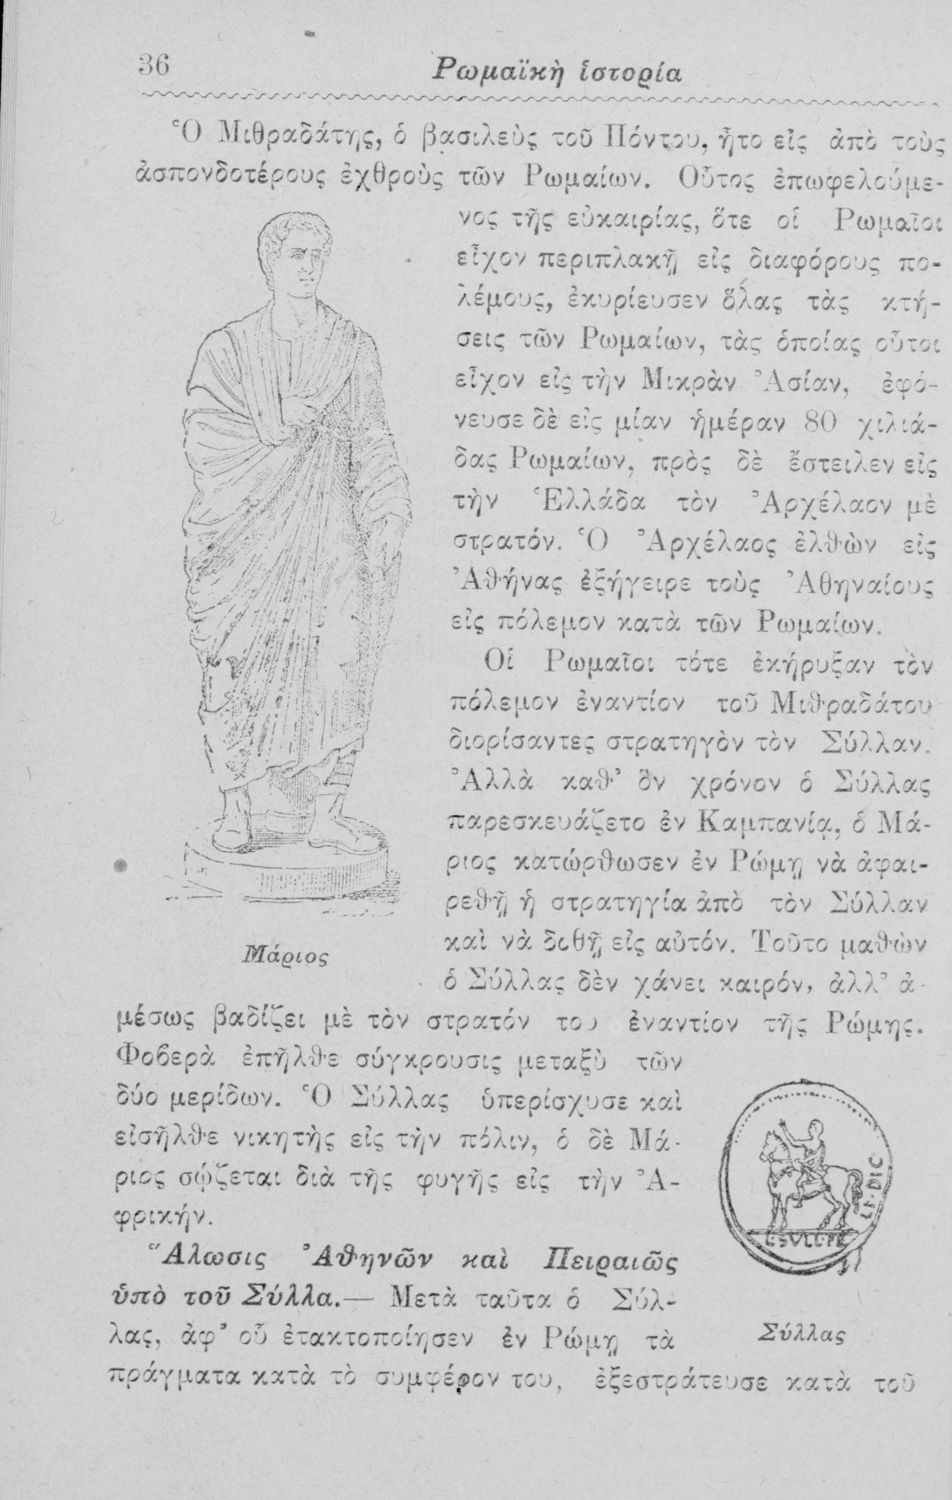 36
Ρωμαϊκὴ ἱστορία
Ὁ Μιθραδάτης, ὁ βασιλεὺς τοῦ Πόντου, ἦτο εἷς ἀπὸ τοὺς
ἀσπονδοτέρους ἐχθροὺς τῶν Ρωμαίων. Οὗτος ἐπωφελούμε-
νος τῆς εὐκαιρίας, ὅτε οἱ Ρωμαῖοι
εἶχον περιπλακῇ εἰς διαφόρους πο-
λέμους, ἐκυρίευσεν ὅλας τὰς κτή-
σεις τῶν Ρωμαίων, τὰς ὁποίας οὗτοι
εἶχον εἰς τὴν Μικρὰν Ἀσίαν, ἐφό-
νευσε δὲ εἰς μίαν ἡμέραν 80 χιλιά-
δας Ρωμαίων, πρὸς δὲ ἔστειλεν εἰς
τὴν Ἑλλάδα τὸν Ἀρχέλαον μὲ
στρατόν. Ὁ Ἀρχέλαος ἐλθὼν εἰς
Ἀθήνας ἐξήγειρε τοὺς Ἀθηναίους
εἰς πόλεμον κατὰ τῶν Ρωμαίων.
Οἱ Ρωμαῖοι τότε ἐκήρυξαν τὸν
πόλεμον ἐναντίον τοῦ Μιθραδάτου
διορίσαντες στρατηγὸν τὸν Σύλλαν.
Ἀλλὰ καθ' ὃν χρόνον ὁ Σύλλας
παρεσκευάζετο ἐν Καμπανίᾳ, ὁ Μά-
ριος κατώρθωσεν ἐν Ρώμῃ νὰ ἀφαι-
ρεθῇ ἡ στρατηγία ἀπὸ τὸν Σύλλαν
καὶ νὰ δοθῇ εἰς αὐτόν. Τοῦτο μαθὼν
ὁ Σύλλας δὲν χάνει καιρόν, ἀλλ' ἀ-
μέσως βαδίζει μὲ τὸν στρατόν του ἐναντίον τῆς Ρώμης.
Φοβερὰ ἐπῆλθε σύγκρουσις μεταξὺ τῶν
δύο μερίδων. Ὁ Σύλλας ὑπερίσχυσε καὶ
εἰσῆλθε νικητὴς εἰς τὴν πόλιν, ὁ δὲ Μά-
ριος σῴζεται διὰ τῆς φυγῆς εἰς τὴν Ἀ-
φρικήν.
Ἅλωσις Ἀθηνῶν καὶ Πειραιῶς
ὑπὸ τοῦ Σύλλα.— Μετὰ ταῦτα ὁ Σύλ-
λας, ἀφ' οὗ ἐτακτοποίησεν ἐν Ρώμῃ τὰ
πράγματα κατὰ τὸ συμφέρον του, ἐξεστράτευσε κατὰ τοῦ
Μάριος
Σύλλας